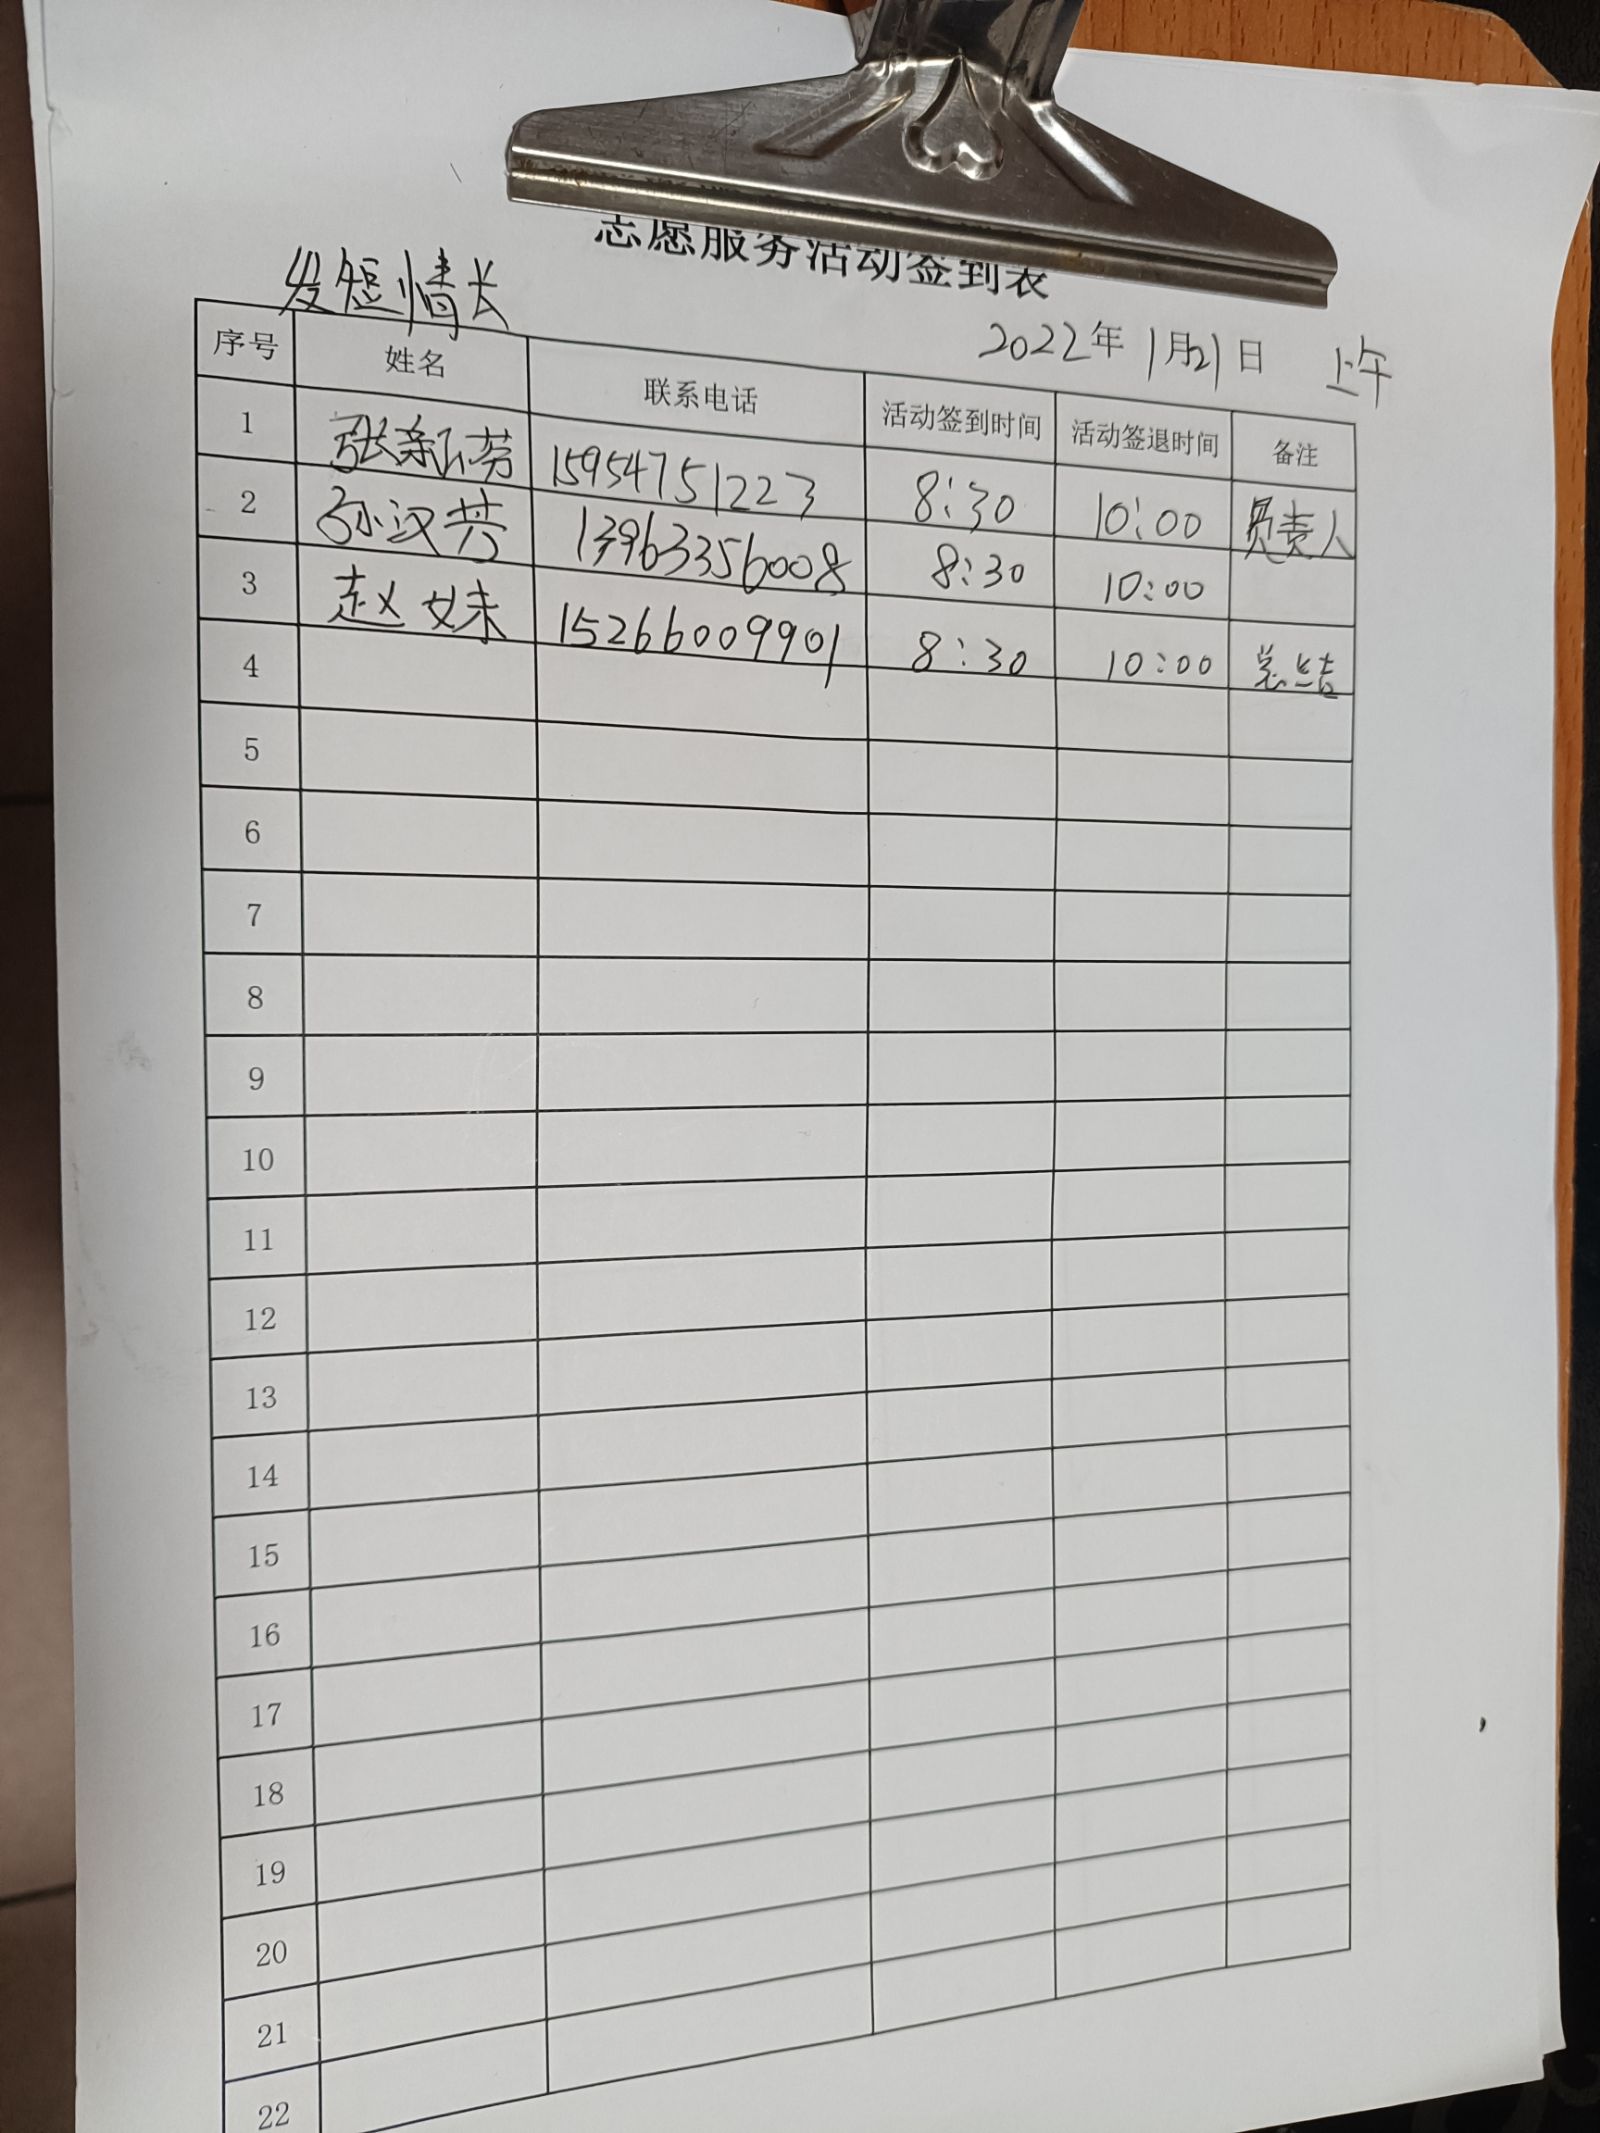 志愿服务活动签到表
发短情长
2022年1月21日 上午
序号 姓名 联系电话 活动签到时间 活动签退时间 备注
1 张新芬 15954751223 8:30 10:00 负责人
2 孙汉芳 13963356008 8:30 10:00
3 赵妹 15266009901 8:30 10:00 总结
4
5
6
7
8
9
10
11
12
13
14
15
16
17
18
19
20
21
22